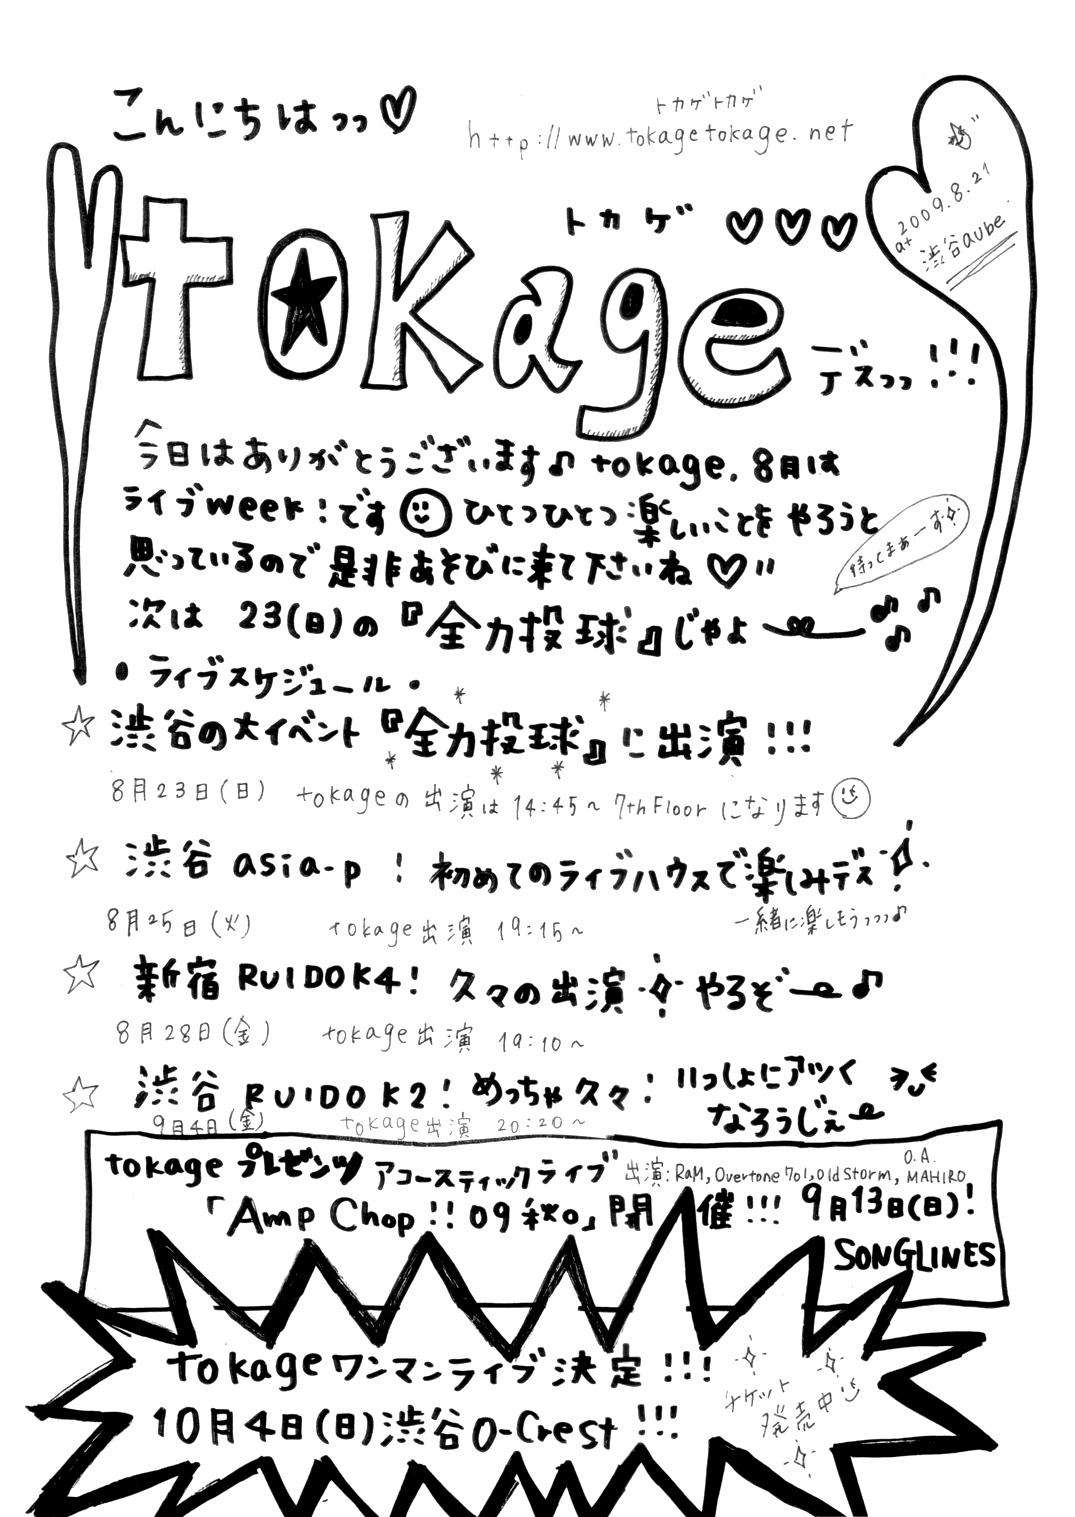 こんにちはっっ♡
トカゲトカゲ
http://www.tokagetokage.net
2009.8.21
at 渋谷aube.
トカゲ ♡♡♡
tokage
デスっっ!!!
今日はありがとうございます♪ tokage. 8月は
ライブweek!です ひとつひとつ楽しいことをやろうと
思っているので是非あそびに来て下さいね♡
待ってまぁーす
次は 23(日)の『全力投球』じゃよ
• ライブスケジュール •
☆ 渋谷の大イベント『全力投球』に出演!!!
8月23日(日) tokageの出演は14:45~ 7th Floorになります
☆ 渋谷 asia-p ! 初めてのライブハウスで楽しみデス!
8月25日(火) tokage出演 19:15~ 一緒に楽しもうっっっ♪
☆ 新宿 RUIDO K4! 久々の出演 やるぞー♪
8月28日(金) tokage出演 19:10~
☆ 渋谷 RUIDO K2! めっちゃ久々! いっしょにアツく
なろうじぇ
9月4日(金) tokage出演 20:20~
tokage プレゼンツ アコースティックライブ 出演:RaM, Overtone701, Old Storm, O.A. MAHIRO
「Amp Chop!!09秋。」開催!!! 9月13日(日)!
SONGLINES
tokage ワンマンライブ決定!!!
10月4日(日)渋谷O-Crest!!!
チケット
発売中